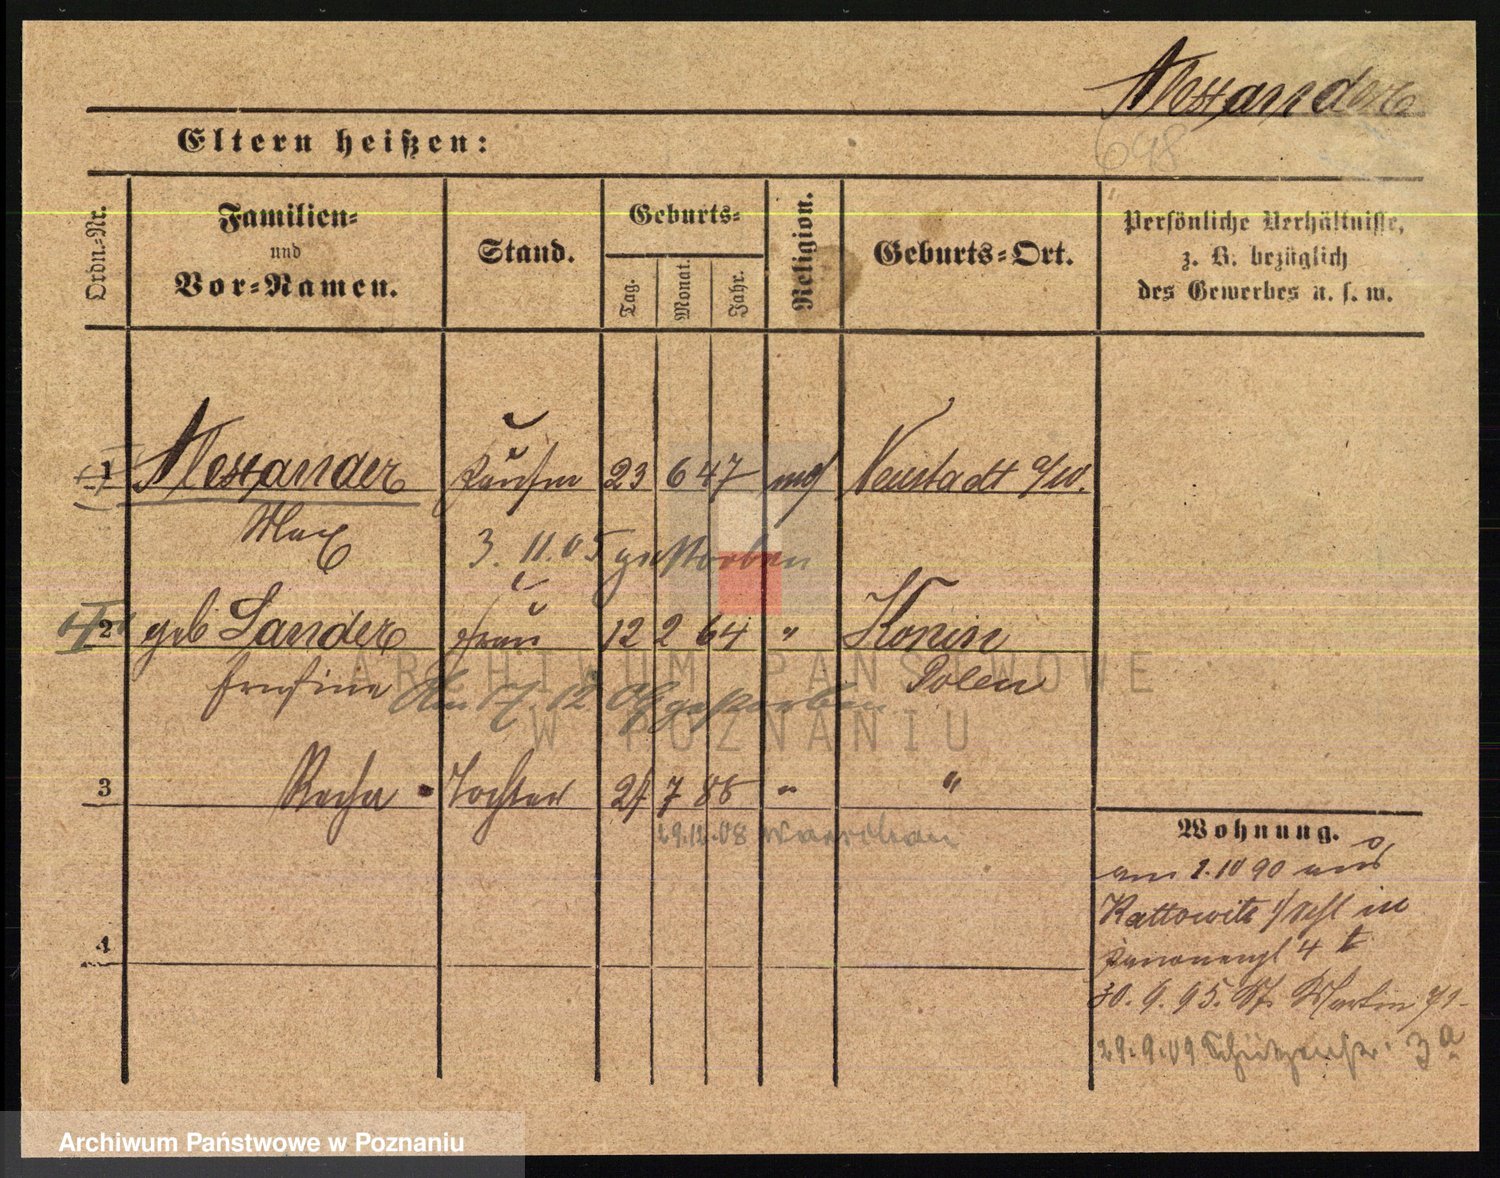 Alexander
698
Eltern heißen:
Ordn.-Nr.
Familien-
und
Vor-Namen.
Stand.
Geburts-
Tag.
Monat.
Jahr.
Religion.
Geburts-Ort.
Persönliche Verhältnisse,
z. B. bezüglich
des Gewerbes u. s. w.
1 Alexander Kaufm 23 6 47 mos Neustadt a/W.
Max
3. 11. 05 gestorben
2 geb Sander Frau 12 2 64 " Konin
Polen
Am 17. 12 gestorben
3 Recha Tochter 27 7 " "
29.12.08 Warschau
4
Wohnung.
am 1. 10 90 aus
Kattowitz in
4
30. 9. 95. St. Martin 71
29.9.09 Schützenstr. 3a
ARCHIWUM PAŃSTWOWE
W POZNANIU
Archiwum Państwowe w Poznaniu